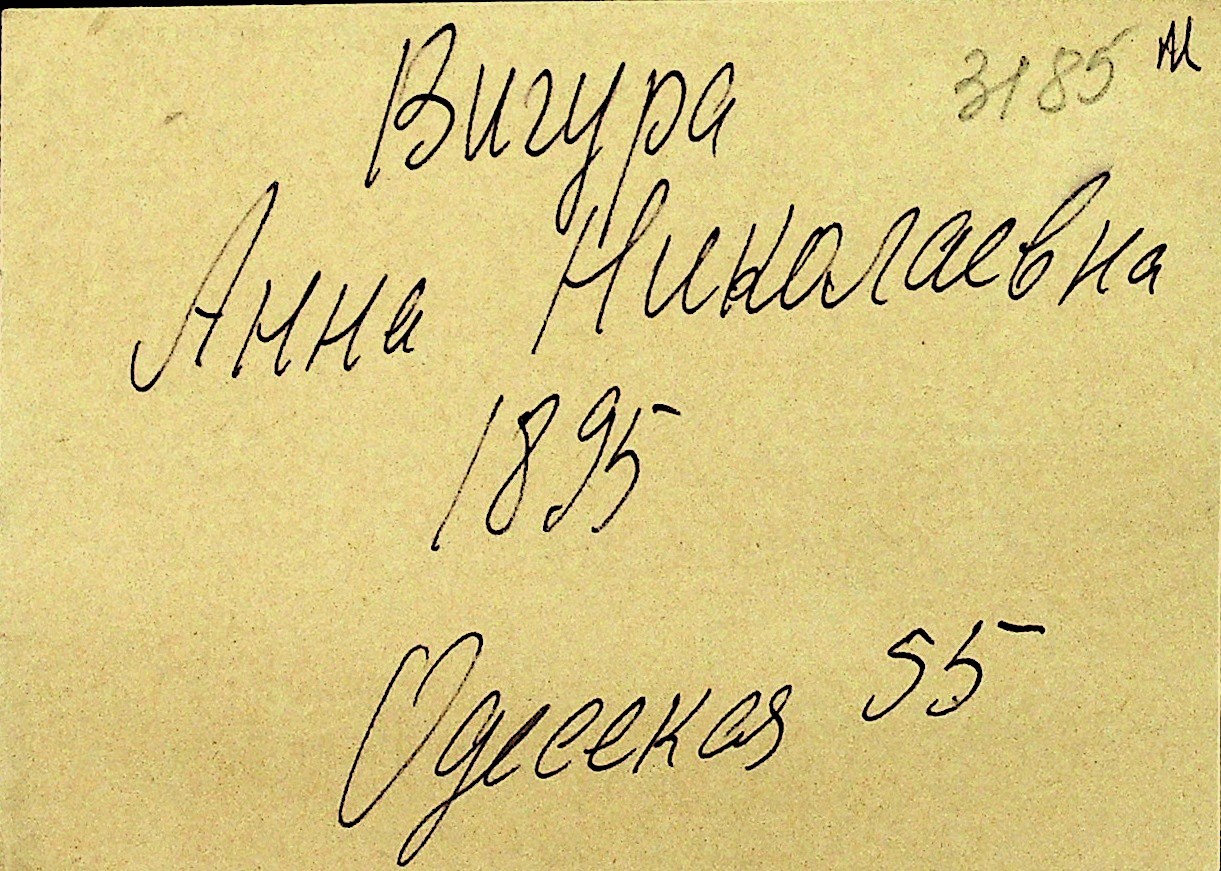 3185
Вигура
Анна Николаевна
1895
Одесская 55